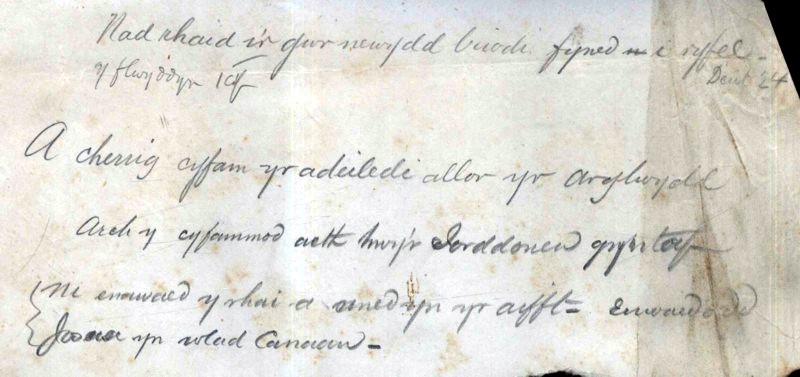 Nad rhaid i'r gwr newydd briodi fyned i ryfel -
y flwyddyn 1af Deut 24
A cherrig cyfam yr adeiledi allor yr Arglwydd
Arch y cyfammod aeth trwy'r Iorddonen gyntaf
Ni enwaed y rhai a yn yr aifft - Enwaedodd
Josua yn wlad Canaan -